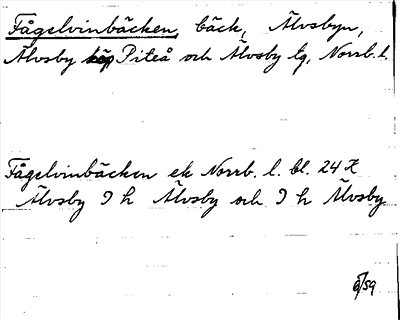 Fågelvinbäcken, bäck, Älvsbyn,
Älvsby Piteå och Älvsby tg, Norrb. l.
Fågelvinbäcken ek Norrb. l. bl. 24 K
Älvsby 9 h Älvsby och 9 h Älvsby
/59